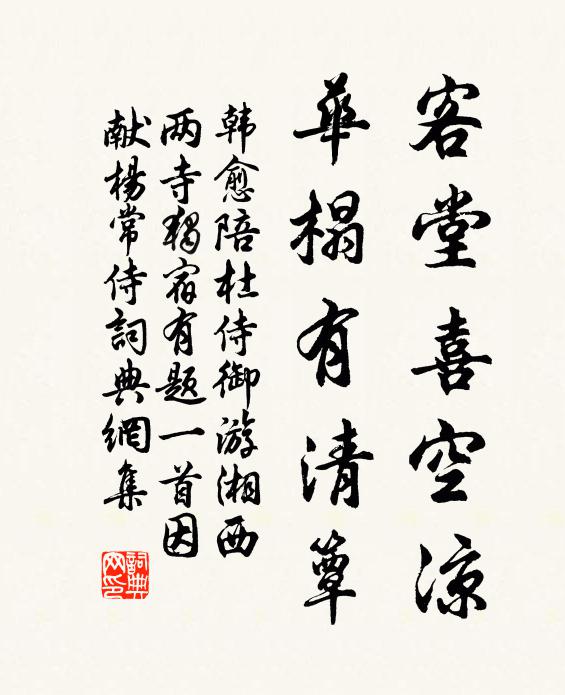 客堂喜空涼
華榻有清簟
韩愈陪杜侍御游湘西
两寺獨宿有题一首因
献楊常侍詞典網集
詞典
网印